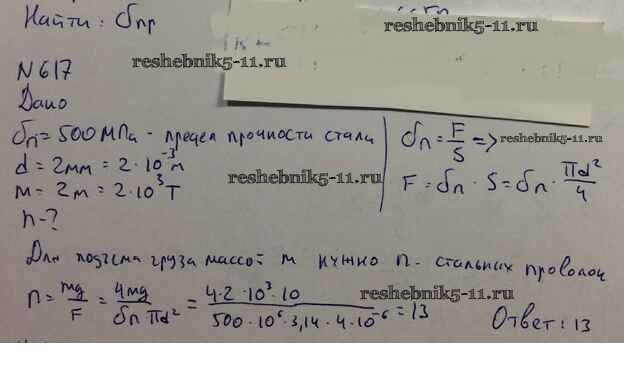 Найти: σпр
reshebnik5-11.ru
reshebnik5-11.ru
N 617
Дано
σп = 500 МПа - предел прочности стали
d = 2мм = 2·10⁻³ м
m = 2т = 2·10³ Т
n - ?
σп = F/S =>
reshebnik5-11.ru
F = σп · S = σп · πd²/4
reshebnik5-11.ru
Для подъема груза массой m нужно n - стальных проволок
n = mg/F = 4mg/σп πd² = 4·2·10³·10/500·10⁶·3,14·4·10⁻⁶ = 13
reshebnik5-11.ru
Ответ: 13